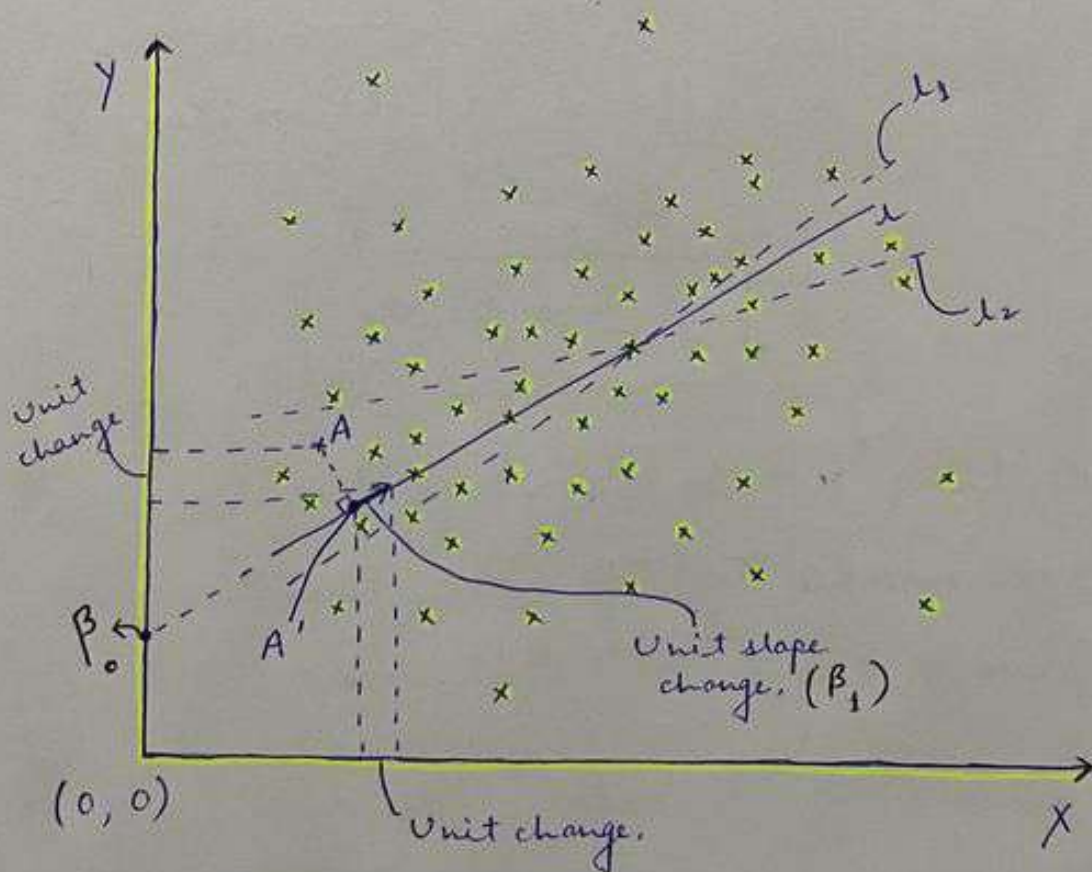 Y
l1
l
l2
Unit
change
A
β0
A'
Unit slope
change. (β1)
(0, 0)
Unit change.
X